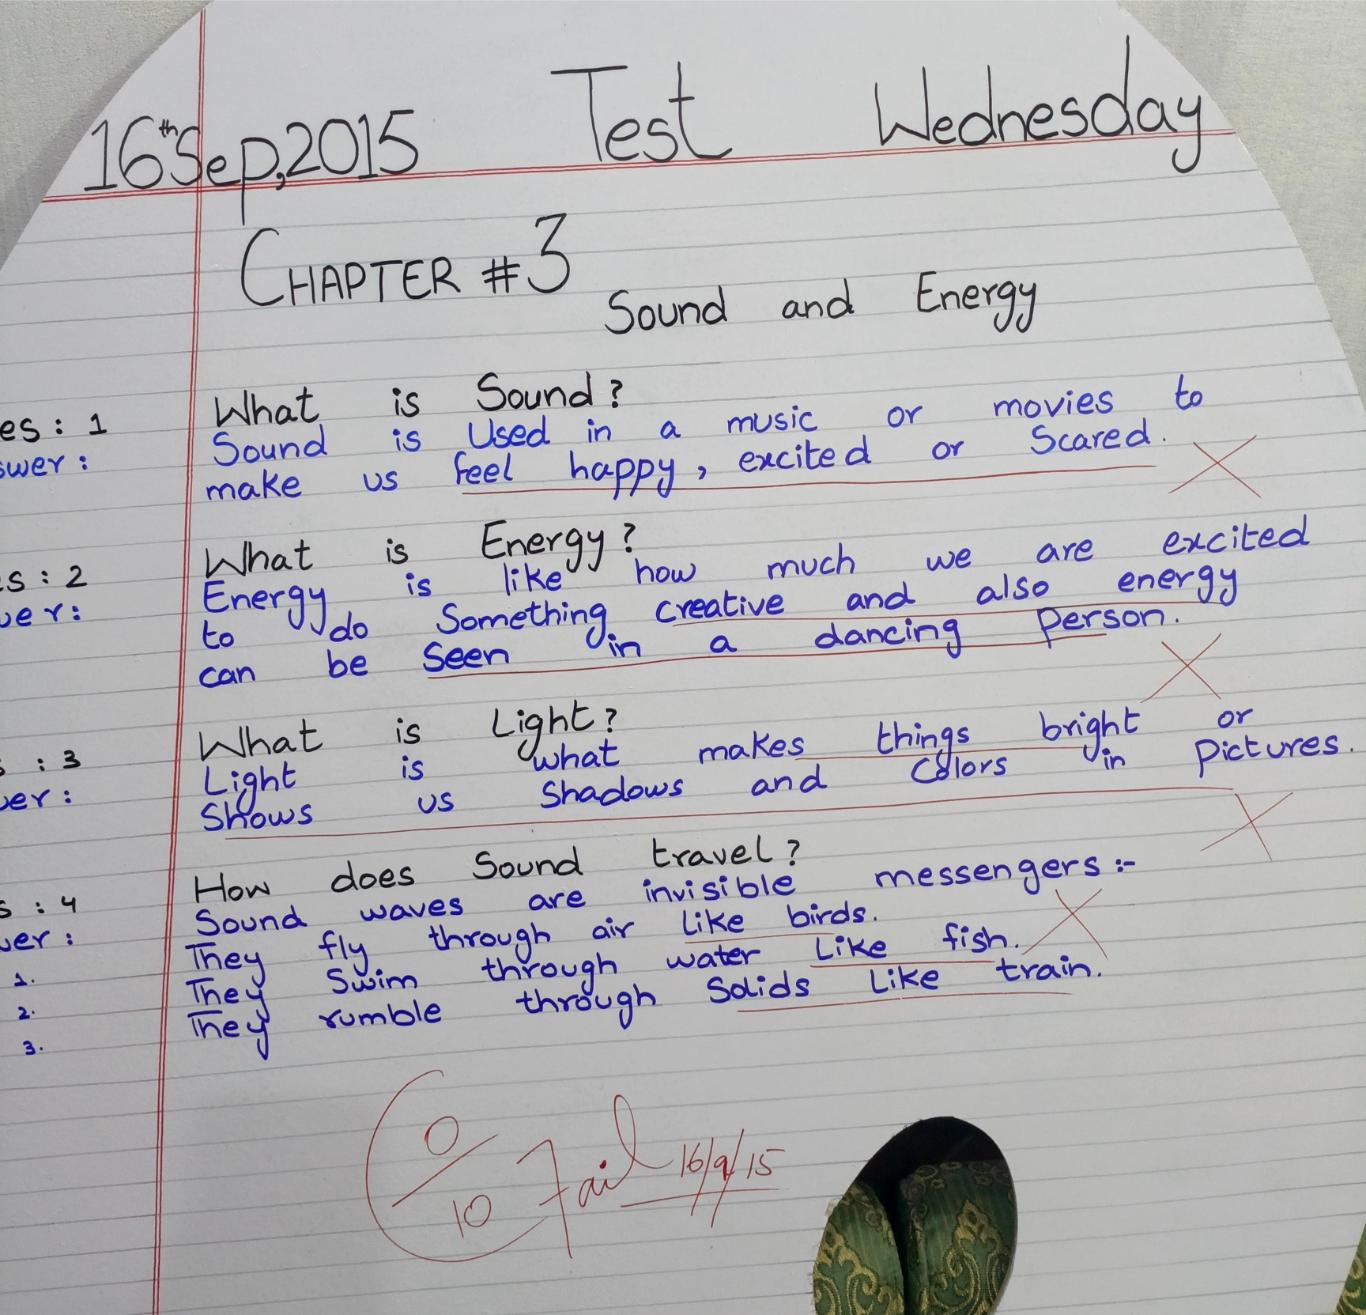 16th Sep, 2015 Test Wednesday
CHAPTER #3
Sound and Energy
es: 1 What is Sound?
swer: Sound is Used in a music or movies to
make us feel happy, excited or Scared.
s: 2 What is Energy?
wer: Energy is like how much we are excited
to do Something creative and also energy
can be Seen in a dancing person.
s: 3 What is Light?
wer: Light is what makes things bright or
Shows us Shadows and Colors in Pictures.
s: 4 How does Sound travel?
wer: Sound waves are invisible messengers:-
1. They fly through air like birds.
2. They Swim through water Like fish.
3. They rumble through Solids Like train.
0/10 Fail 16/9/15